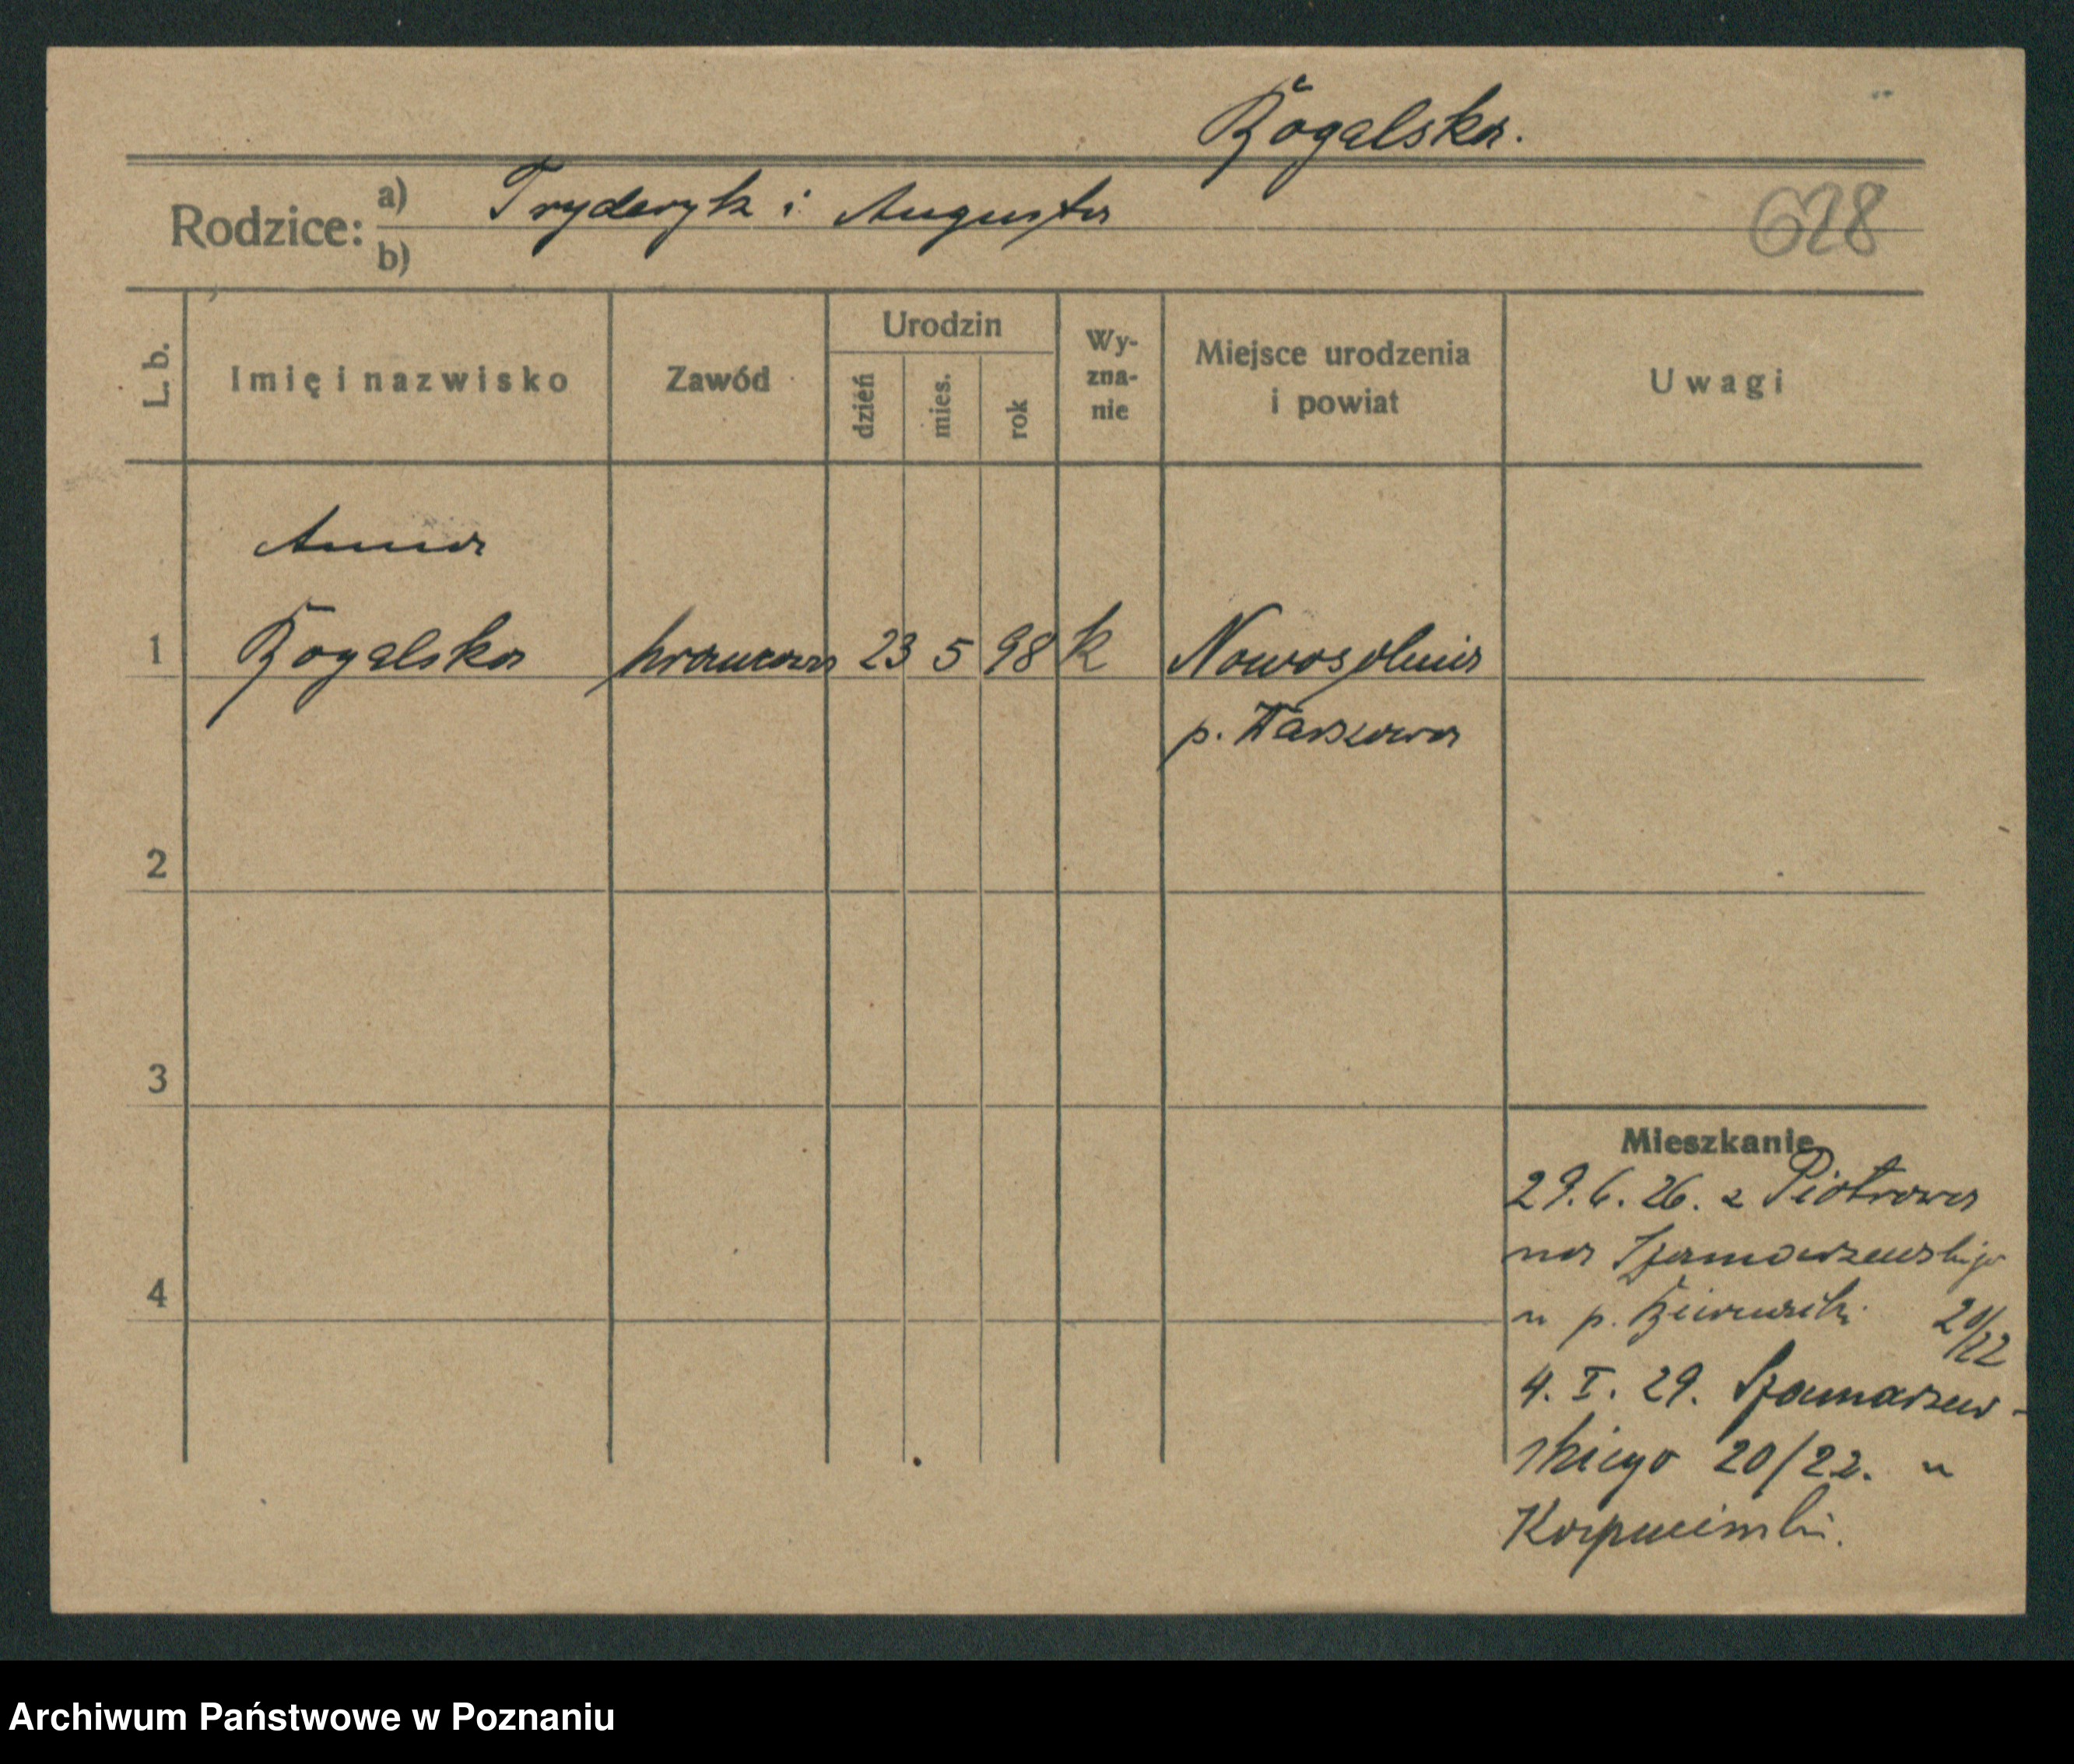 Rogalska.
Rodzice: a) Fryderyk i Augusta
b)
628
L. b.
Imię i nazwisko
Zawód
Urodzin
dzień
mies.
rok
Wy-
zna-
nie
Miejsce urodzenia
i powiat
Uwagi
Anna
1 Rogalska krawcowa 23 5 98 k Nowosolna
p. Warszawa
2
3
4
Mieszkanie
29.6.26. z Piotrowa
na Szamarzewskiego
u p. 20/22
4. I. 29. Szamarzew-
skiego 20/22. u
Archiwum Państwowe w Poznaniu